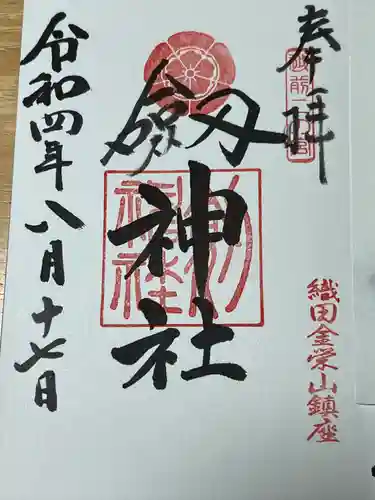 奉拝
越前二宮
織田金栄山鎮座
劔神社
劔神社
令和四年八月十七日